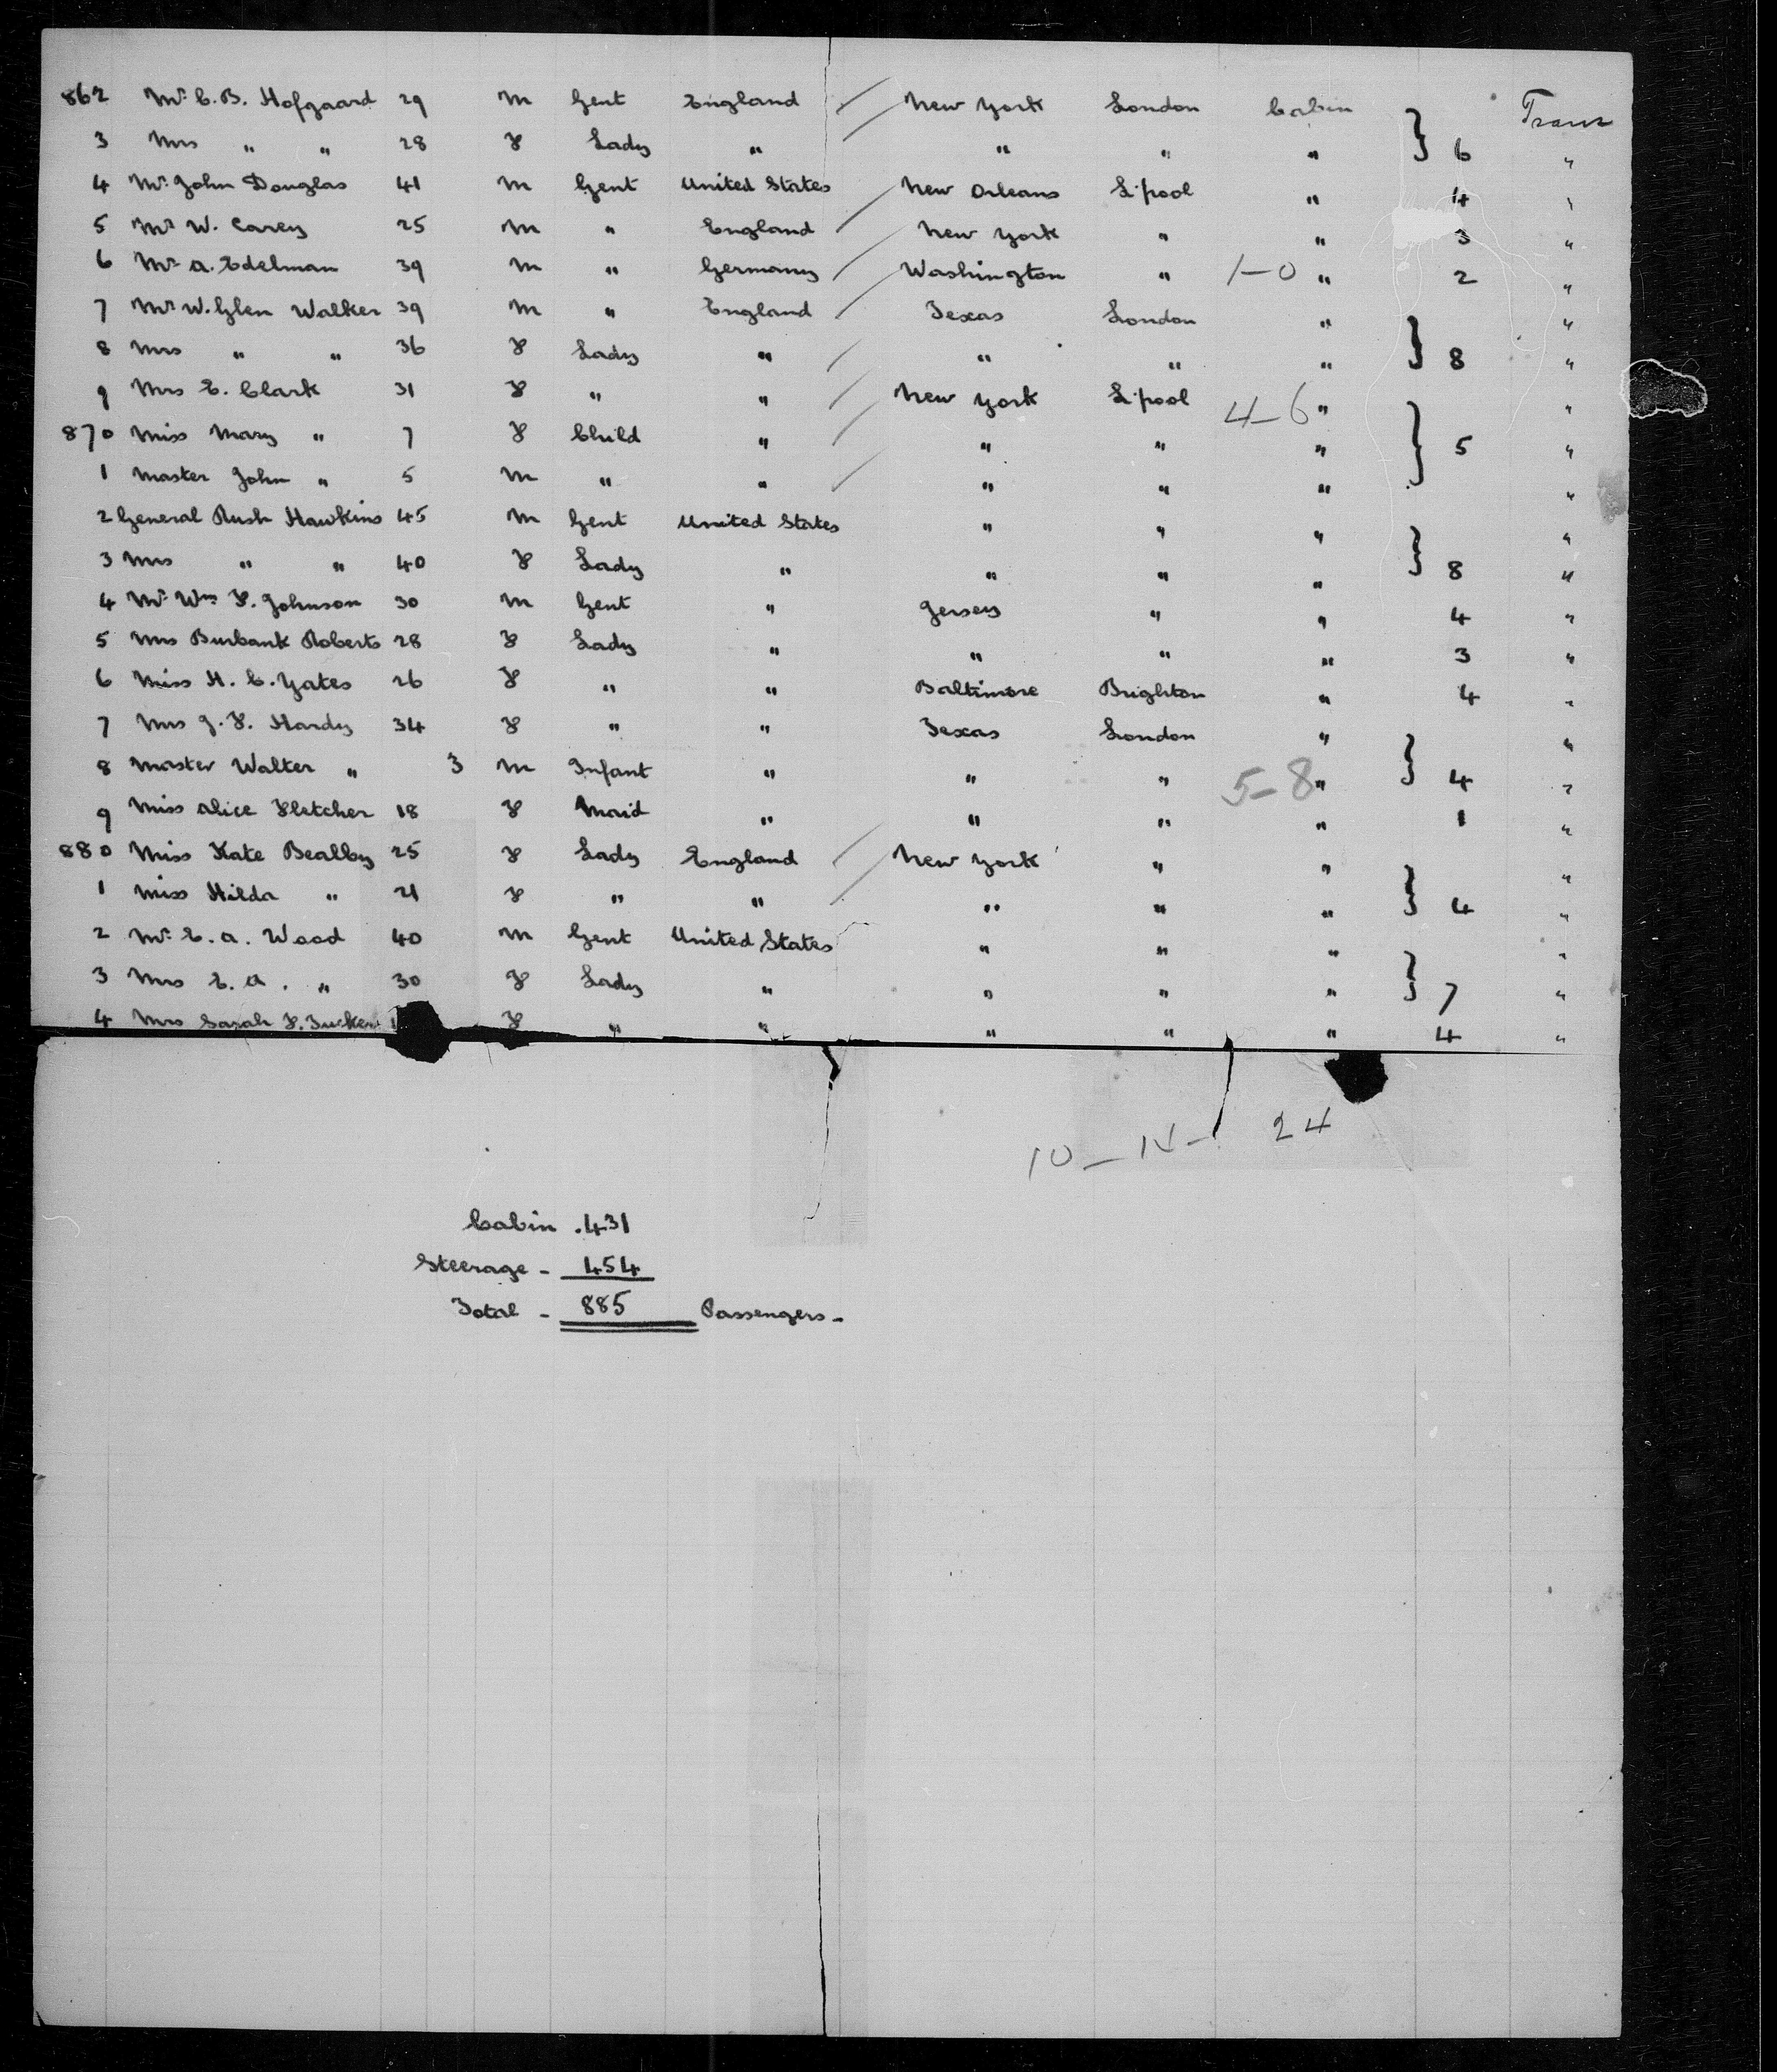 862 Mr C. B. Hofgaard 29 M Gent England / New York London Cabin } Trans
3 Mrs " " 28 F Lady " / " " " 6 "
4 Mr John Douglas 41 M Gent United States / New Orleans L'pool " 4 "
5 Mr W. Carey 25 M " England / New York " " 3 "
6 Mr A. Edelman 39 M " Germany / Washington " 1-0 " 2 "
7 Mr W. Glen Walker 39 M " England / Texas London " } "
8 Mrs " " 36 F Lady " / " " " 8 "
9 Mrs E. Clark 31 F " " / New York L'pool 4-6 " } "
870 Miss Mary " 7 F Child " / " " " 5 "
1 Master John " 5 M " " / " " " "
2 General Rush Hawkins 45 M Gent United States " " " } "
3 Mrs " " 40 F Lady " " " " 8 "
4 Mr Wm F. Johnson 30 M Gent " Jersey " " 4 "
5 Mrs Burbank Roberts 28 F Lady " " " " 3 "
6 Miss H. C. Yates 26 F " " Baltimore Brighton " 4 "
7 Mrs J. F. Hardy 34 F " " Texas London " } "
8 Master Walter " 3 M Infant " " " 5-8 " 4 "
9 Miss Alice Fletcher 18 F Maid " " " " 1 "
880 Miss Kate Bealby 25 F Lady England / New York " " } "
1 Miss Hilda " 21 F " " / " " " 4 "
2 Mr E. A. Wood 40 M Gent United States " " " } "
3 Mrs E. A. " 30 F Lady " " " " 7 "
4 Mrs Sarah F. F " " " " " 4 "
24
Cabin . 431
Steerage - 454
Total - 885 Passengers -